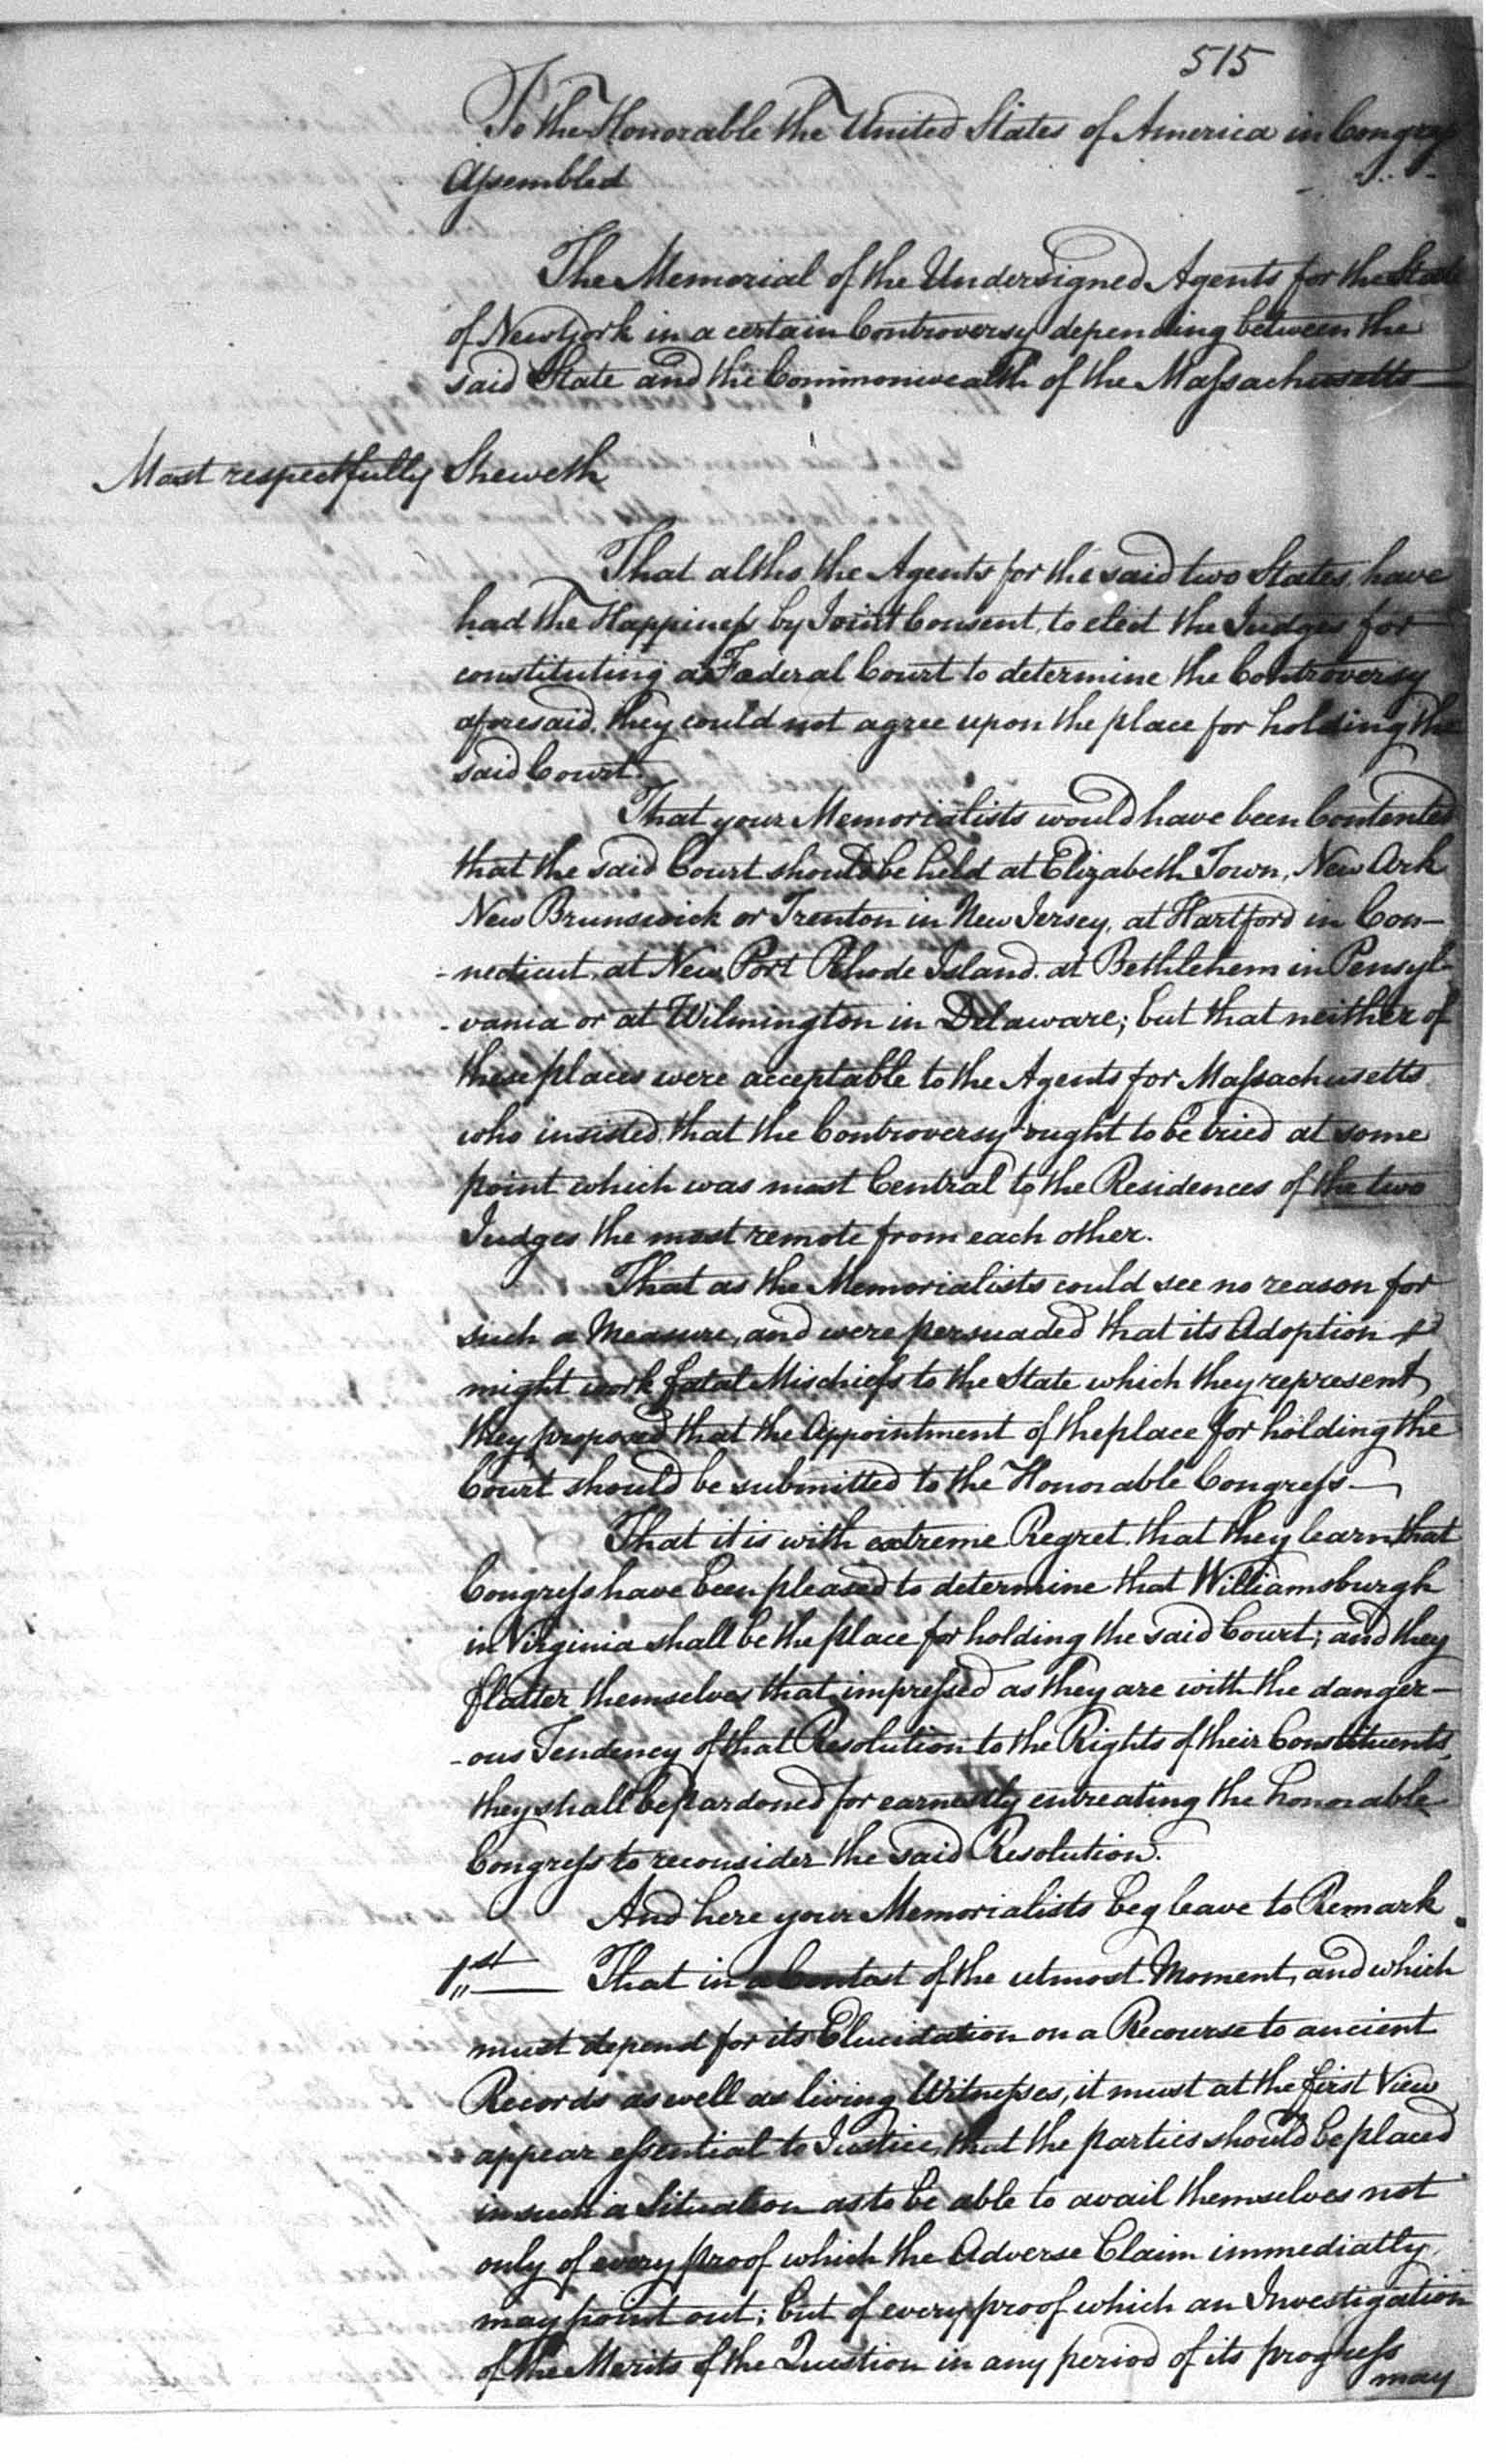 515
To the Honorable the United States of America in Congress
Assembled
The Memorial of the Undersigned Agents for the State
of New York in a certain Controversy depending between the
said State and the Commonwealth of the Massachusetts
Most respectfully Sheweth
That altho the Agents for the said two States, have
had the Happiness by Joint Consent, to elect the Judges for
constituting a Fœderal Court to determine the Controversy
aforesaid, they could not agree upon the place for holding the
said Court.
That your Memorialists would have been Contented
that the said Court should be held at Elizabeth Town, New Ark
New Brunswick or Trenton in New Jersey, at Hartford in Con-
-necticut, at New Port Rhode Island, at Bethlehem in Pensyl-
-vania or at Wilmington in Delaware; but that neither of
these places were acceptable to the Agents for Massachusetts
who insisted, that the Controversy ought to be tried at some
point which was most Central to the Residences of the two
Judges the most remote from each other.
That as the Memorialists could see no reason for
such a Measure, and were persuaded that its Adoption
might work fatal Mischiefs to the State which they represent,
they proposed that the Appointment of the place for holding the
Court should be submitted to the Honorable Congress.—
That it is with extreme Regret, that they learn that
Congress have been pleased to determine that Williamsburgh
in Virginia shall be the place for holding the said Court; and they
flatter themselves that impressed as they are with the danger-
-ous Tendency of that Resolution to the Rights of their Constituents,
they shall be pardoned for earnestly entreating the honorable
Congress to reconsider the said Resolution.
And here your Memorialists beg leave to Remark.
1st— That in a Contest of the utmost Moment, and which
must depend for its Elucidation on a Recourse to ancient
Records as well as living Witnesses, it must at the first View
appear essential to Justice, that the parties should be placed
in such a Situation as to be able to avail themselves not
only of every proof which the Adverse Claim immediatly
may point out; but of every proof which an Investigation
of the Merits of the Question in any period of its progress
may